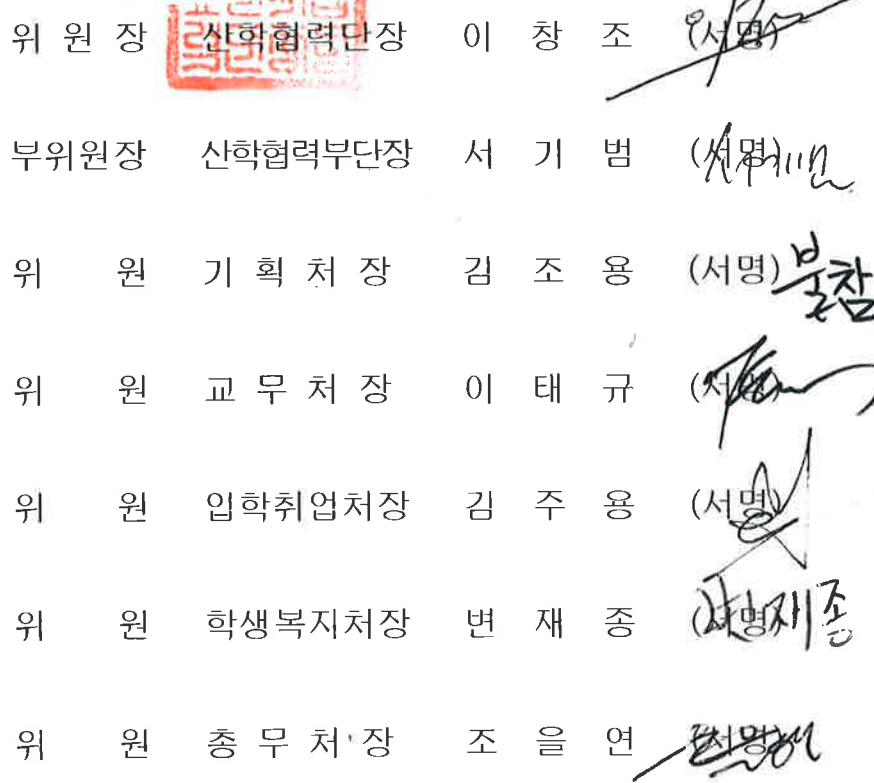 위 원 장 산학협력단장 이 창 조 (서명)
부위원장 산학협력부단장 서 기 범 (서명)
위 원 기 획 처 장 김 조 용 (서명) 불참
위 원 교 무 처 장 이 태 규 (서명)
위 원 입학취업처장 김 주 용 (서명)
위 원 학생복지처장 변 재 종 (서명) 변재종
위 원 총 무 처 장 조 을 연 (서명)